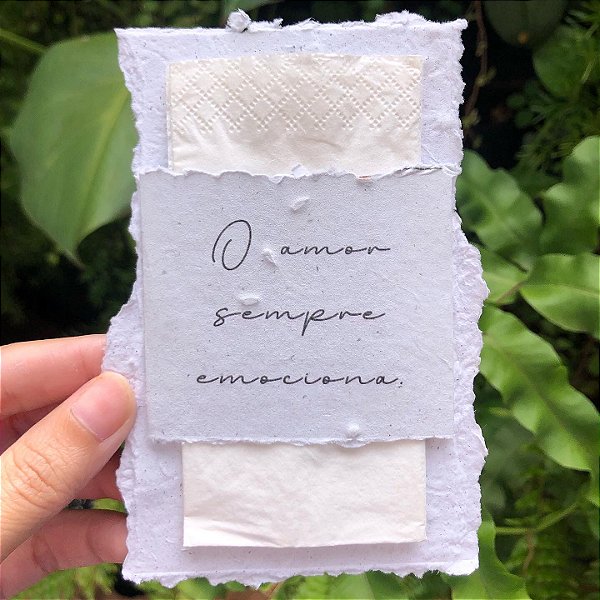 O amor
sempre
emociona.